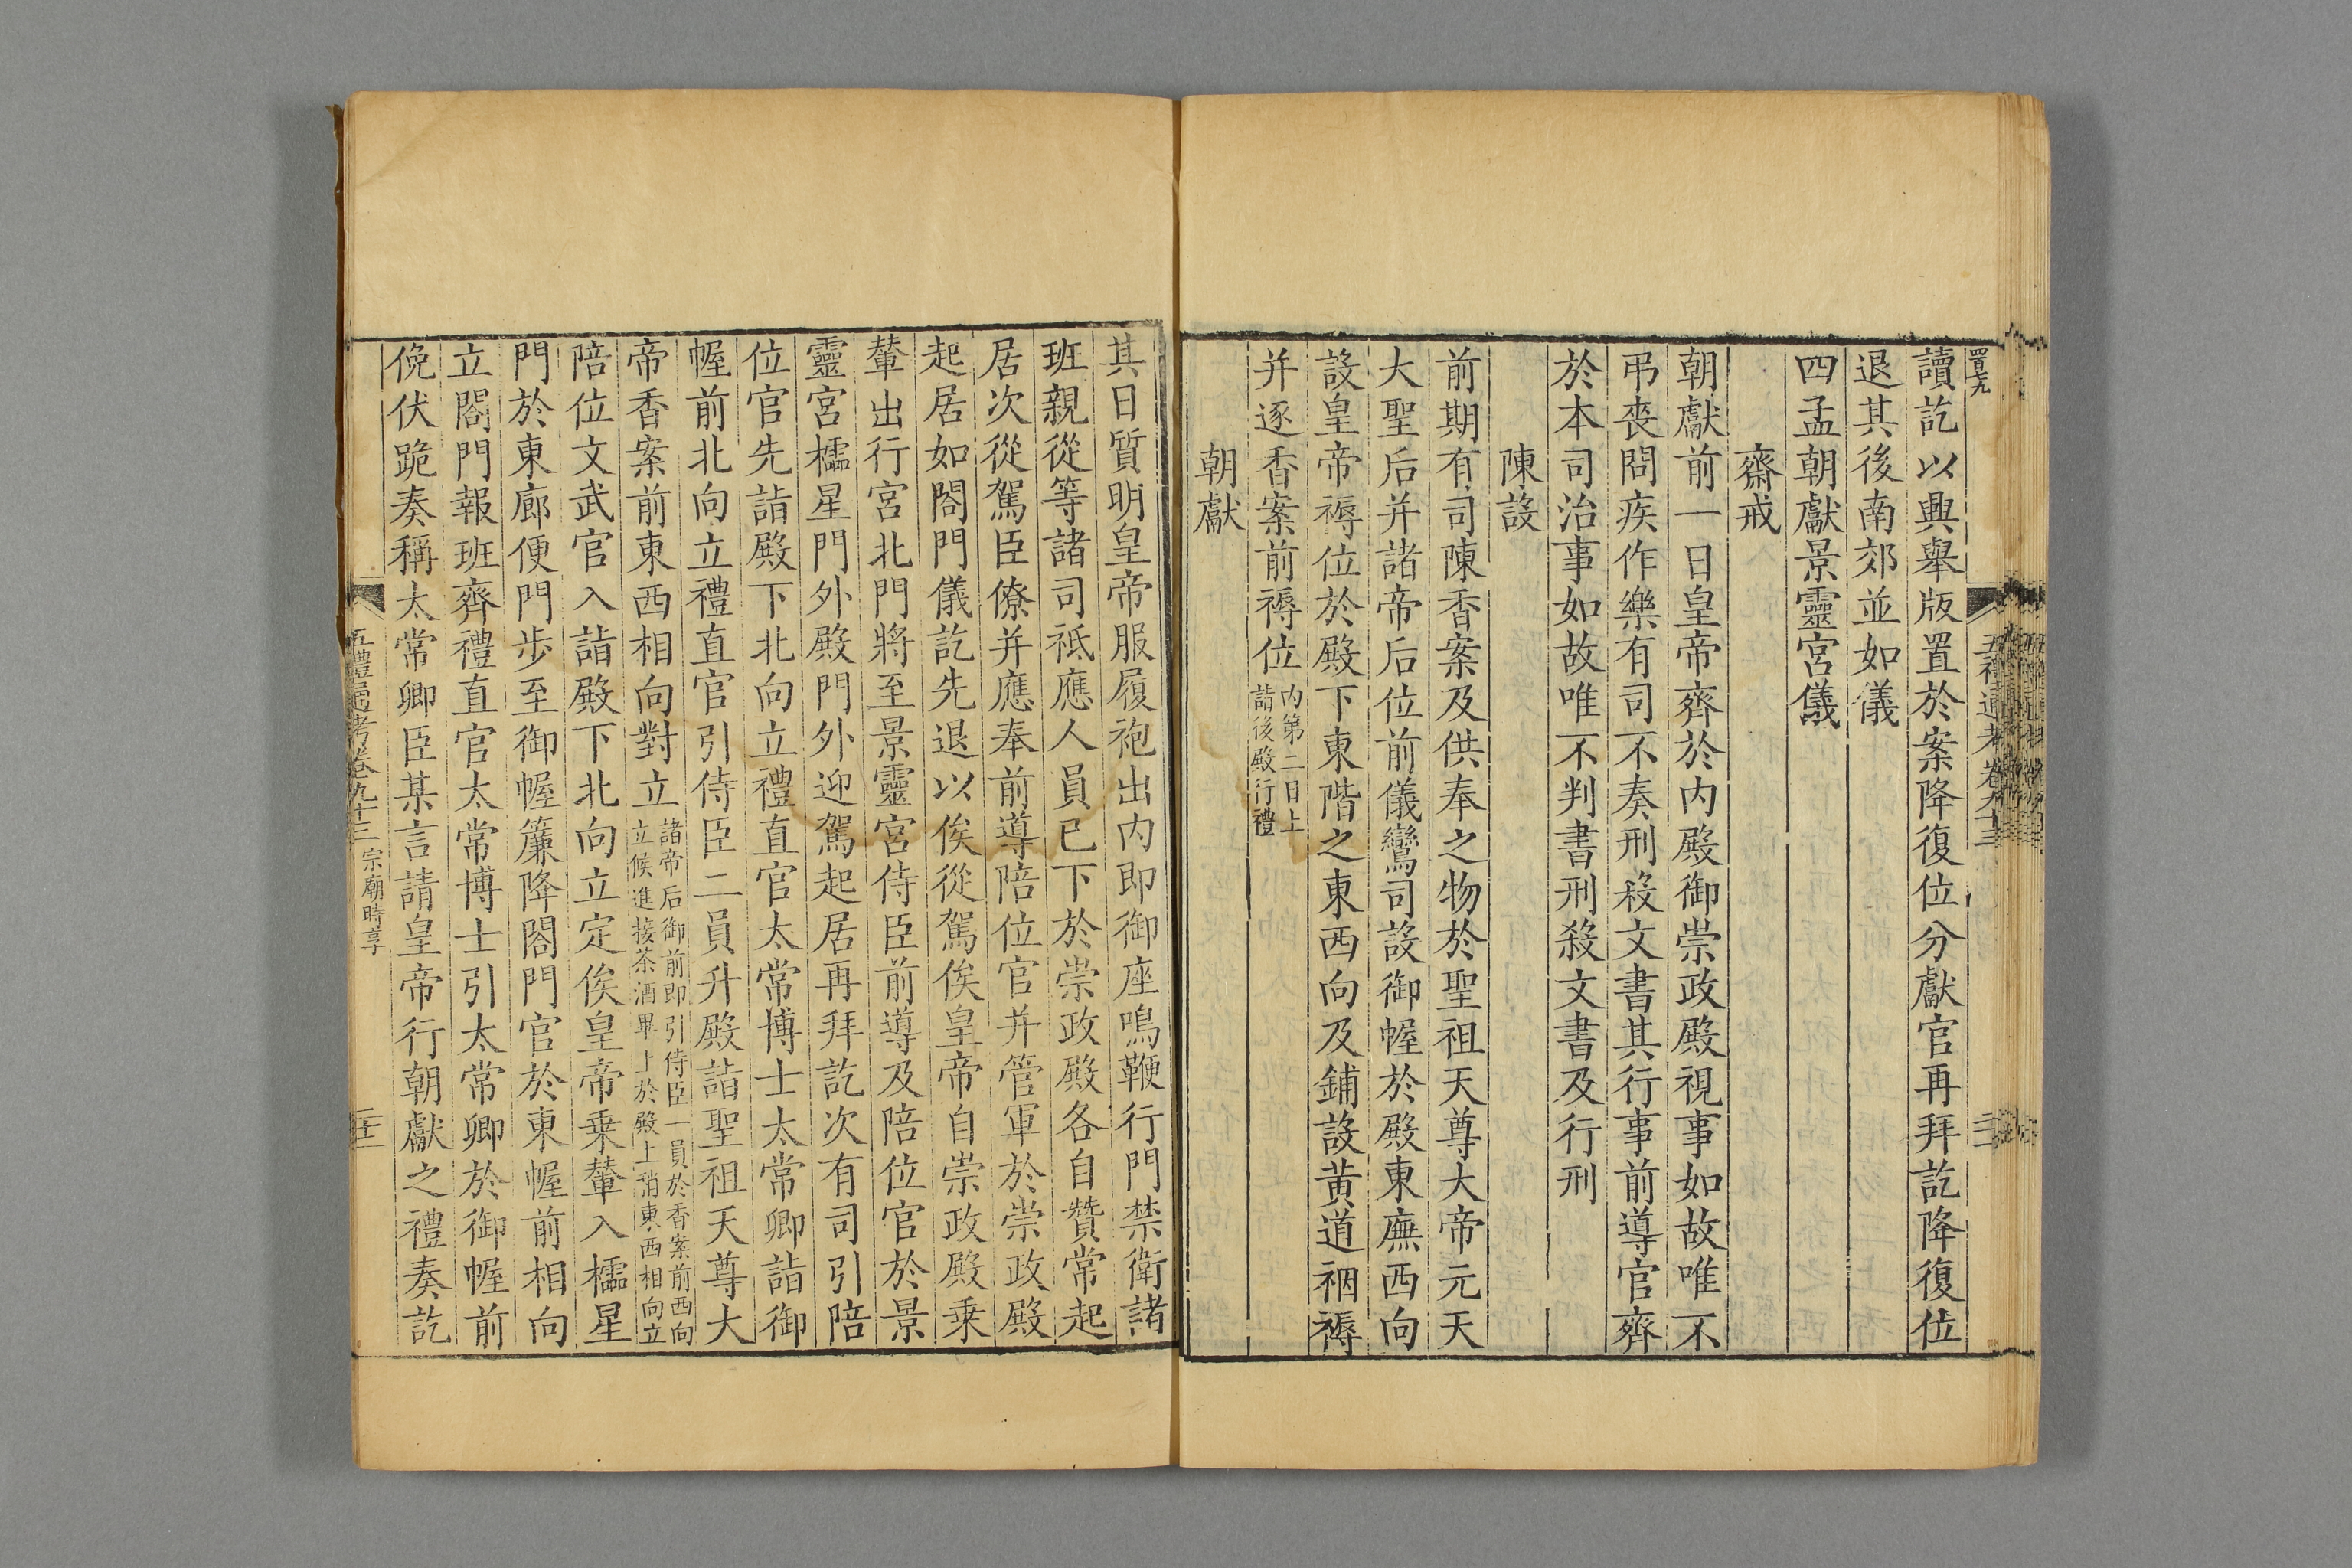 讀訖以興舉版置於案降復位分獻官再拜訖降復位
退其後南郊並如儀
四孟朝獻景靈宮儀
齋戒
朝獻前一日皇帝齊於内殿御崇政殿視事如故唯不
弔喪問疾作樂有司不奏刑殺文書其行事前導官齊
於本司治事如故唯不判書刑殺文書及行刑
陳設
前期有司陳香案及供奉之物於聖祖天尊大帝元天
大聖后并諸帝后位前儀鸞司設御幄於殿東廡西向
設皇帝褥位於殿下東階之東西向及鋪設黄道裀褥
并逐香案前褥位内第二日上詣後殿行禮
朝獻
其日質明皇帝服履袍出内即御座鳴鞭行門禁衛諸
班親從等諸司祇應人員已下於崇政殿各自贊常起
居次從駕臣僚并應奉前導陪位官并管軍於崇政殿
起居如閤門儀訖先退以俟從駕俟皇帝自崇政殿乗
輦出行宮北門將至景靈宮侍臣前導及陪位官於景
靈宮櫺星門外殿門外迎駕起居再拜訖次有司引陪
位官先詣殿下北向立禮直官太常博士太常卿詣御
幄前北向立禮直官引侍臣二員升殿詣聖祖天尊大
帝香案前東西相向對立諸帝后御前即引侍臣一員於香案前西向立候進接茶酒畢上於殿上稍東西相向立
陪位文武官入詣殿下北向立定俟皇帝乗輦入櫺星
門於東廊便門步至御幄簾降閤門官於東幄前相向
立閤門報班齊禮直官太常博士引太常卿於御幄前
俛伏跪奏稱太常卿臣某言請皇帝行朝獻之禮奏訖
五禮通考卷九十三 宗廟時享